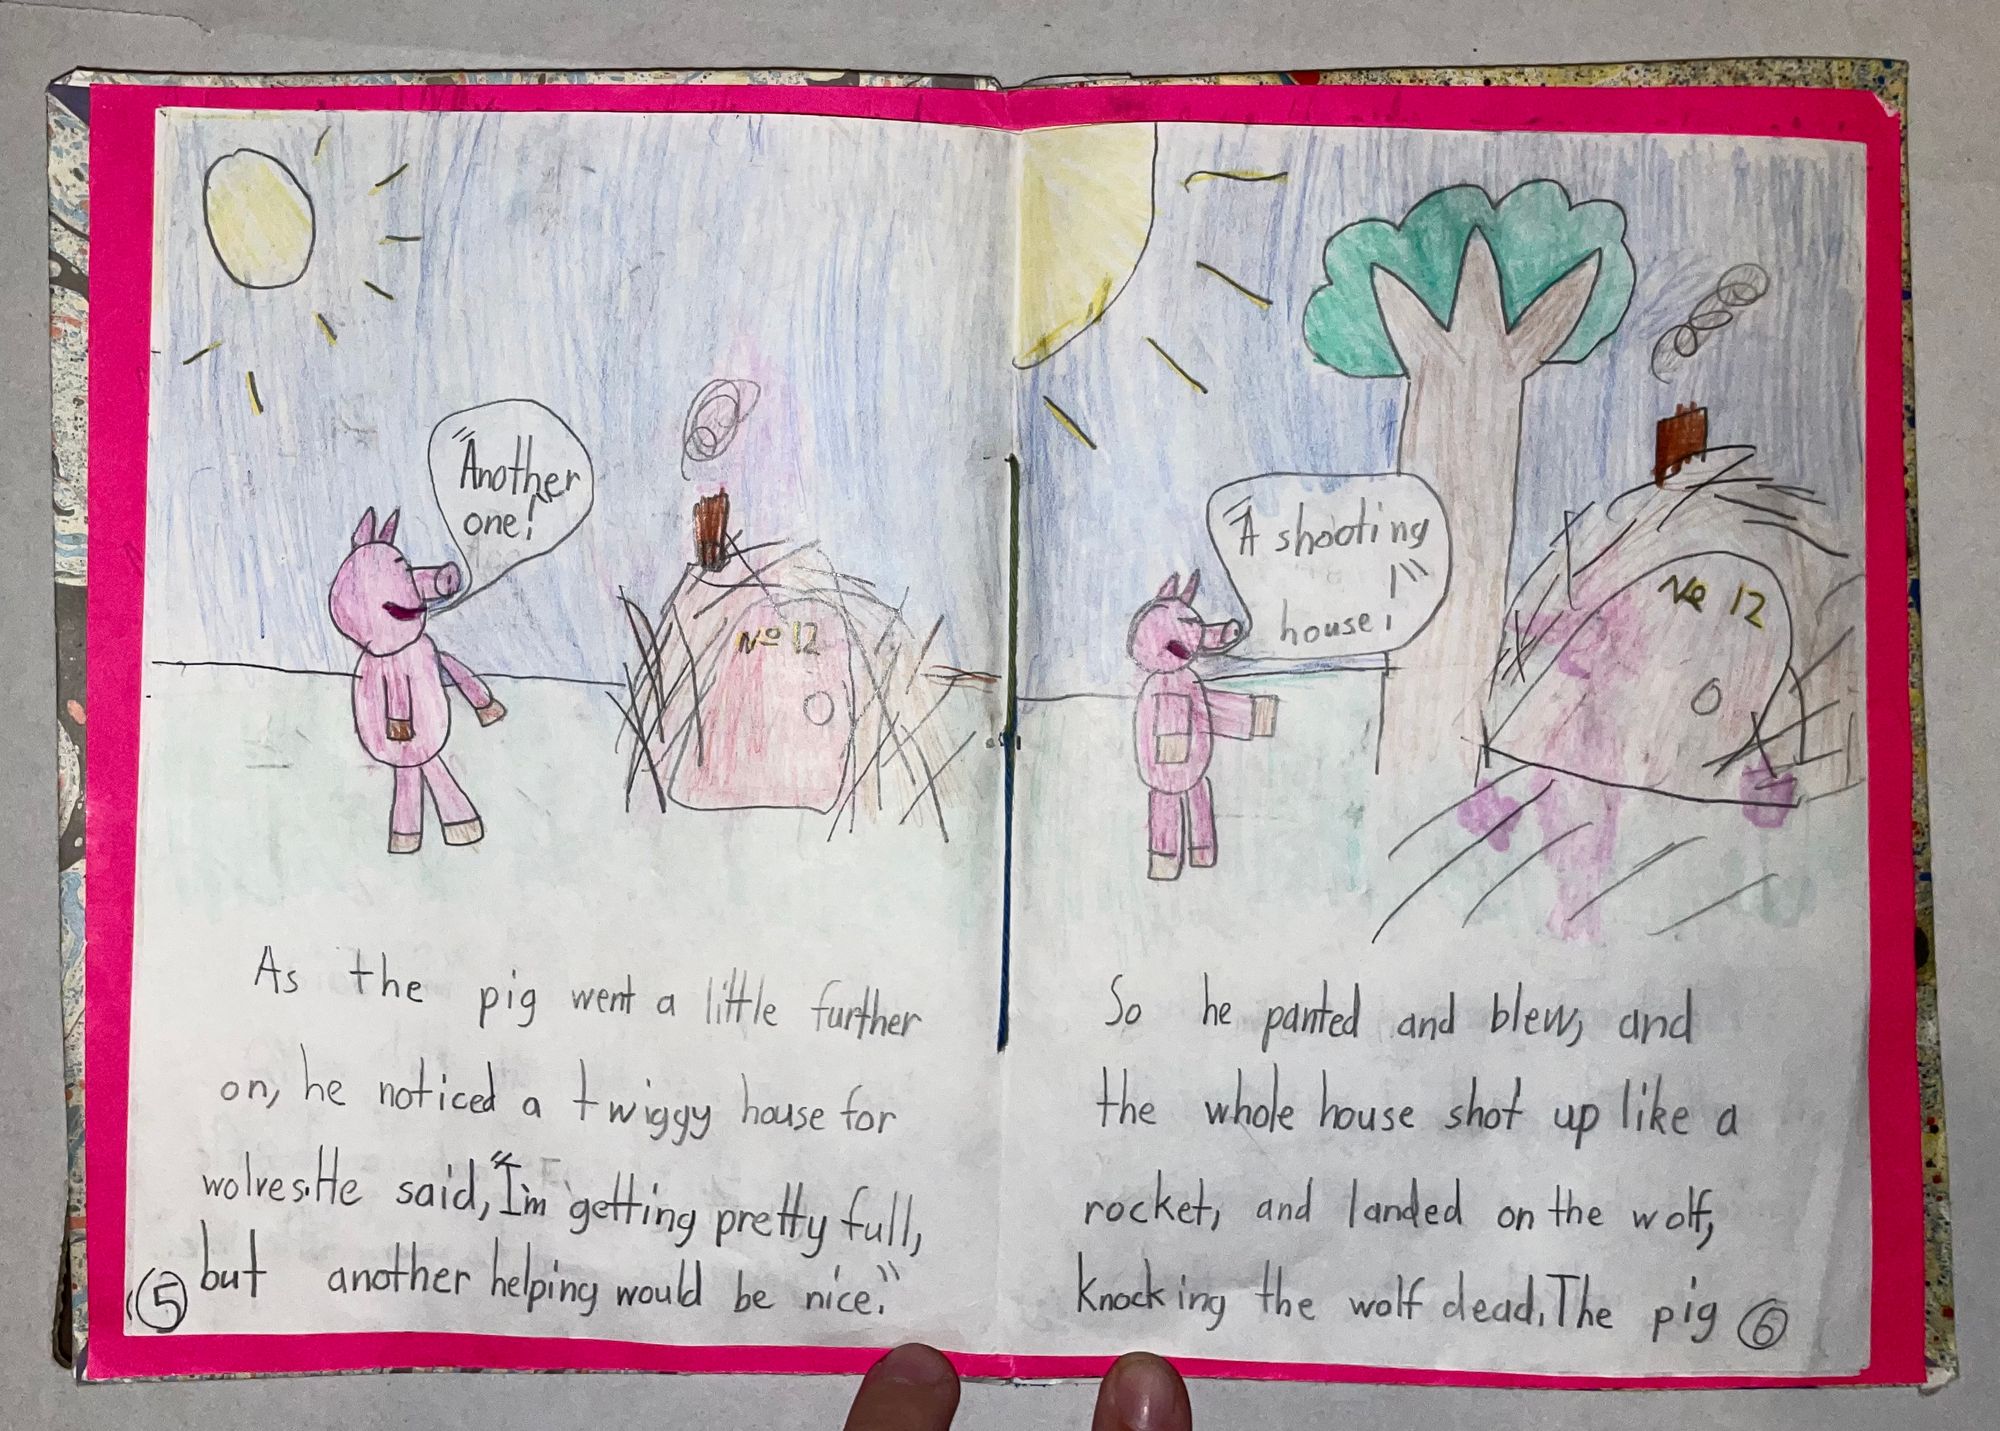 "Another
one!"
No 12
As the pig went a little further
on, he noticed a twiggy house for
wolves. He said, "I'm getting pretty full,
but another helping would be nice."
5
"A shooting
house!"
No 12
So he panted and blew, and
the whole house shot up like a
rocket, and landed on the wolf,
knocking the wolf dead. The pig
6